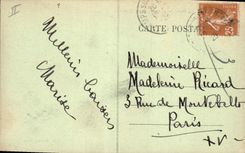 II
CARTE POSTALE
25
Meilleurs baisers
Marise
Mademoiselle
Madeleine Ricard
3, Rue de Montebello
Paris
XV